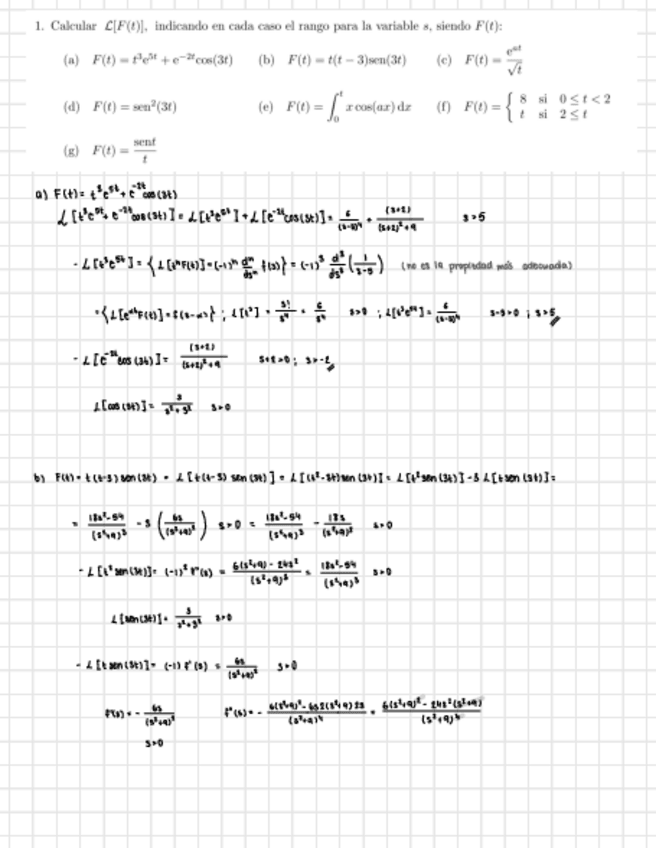 1. Calcular ℒ[F(t)], indicando en cada caso el rango para la variable s, siendo F(t):
(a) F(t) = t³e⁵ᵗ + e⁻²ᵗcos(3t) (b) F(t) = t(t − 3)sen(3t) (c) F(t) = eᵃᵗ/√t
(d) F(t) = sen²(3t) (e) F(t) = ∫₀ᵗ x cos(ax) dx (f) F(t) = { 8 si 0 ≤ t < 2
t si 2 ≤ t
(g) F(t) = sent/t
a) F(t) = t³e⁵ᵗ + e⁻²ᵗcos(3t)
ℒ[t³e⁵ᵗ + e⁻²ᵗcos(3t)] = ℒ[t³e⁵ᵗ] + ℒ[e⁻²ᵗcos(3t)] = 6/(s-5)⁴ + (s+2)/((s+2)²+9) s>5
- ℒ[t³e⁵ᵗ] = {ℒ[tⁿF(t)] = (-1)ⁿ dⁿ/dsⁿ f(s)} = (-1)³ d³/ds³ (1/(s-5)) (no es la propiedad más adecuada)
= {ℒ[eᵅᵗF(t)] = f(s-α)} ; ℒ[t³] = 3!/s⁴ = 6/s⁴ s>0 ; ℒ[t³e⁵ᵗ] = 6/(s-5)⁴ s-5>0 ; s>5
- ℒ[e⁻²ᵗcos(3t)] = (s+2)/((s+2)²+9) s+2>0 ; s>-2
ℒ[cos(3t)] = s/(s²+3²) s>0
b) F(t) = t(t-3)sen(3t) = ℒ[t(t-3)sen(3t)] = ℒ[(t²-3t)sen(3t)] = ℒ[t²sen(3t)] - 3ℒ[tsen(3t)] =
= (18s²-54)/(s²+9)³ - 3 (6s/(s²+9)²) s>0 = (18s²-54)/(s²+9)³ - 18s/(s²+9)² s>0
- ℒ[t²sen(3t)] = (-1)² f''(s) = (-6(s²+9) + 24s²)/(s²+9)³ = (18s²-54)/(s²+9)³ s>0
ℒ[sen(3t)] = 3/(s²+3²) s>0
- ℒ[tsen(3t)] = (-1) f'(s) = 6s/(s²+9)² s>0
f'(s) = - 6s/(s²+9)² f''(s) = - (6(s²+9)² - 6s2(s²+9)2s)/(s²+9)⁴ = (6(s²+9)² - 24s²(s²+9))/(s²+9)⁴
s>0